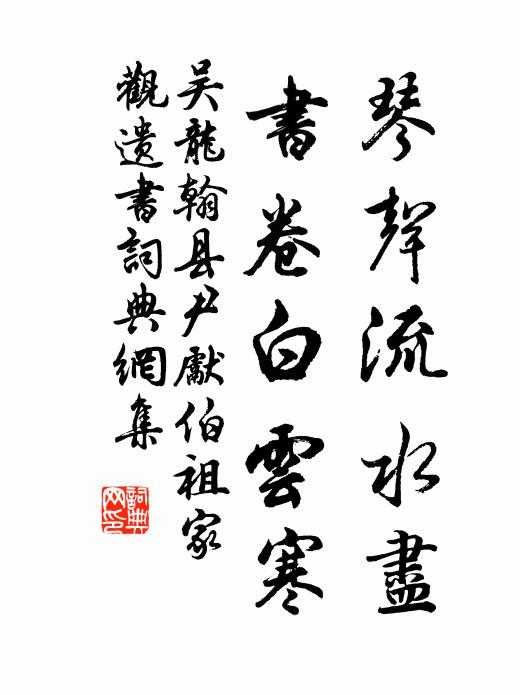 琴聲流水盡
書卷白雲寒
吴龍翰县尹獻伯祖家
觀遺書詞典網集
詞典网印